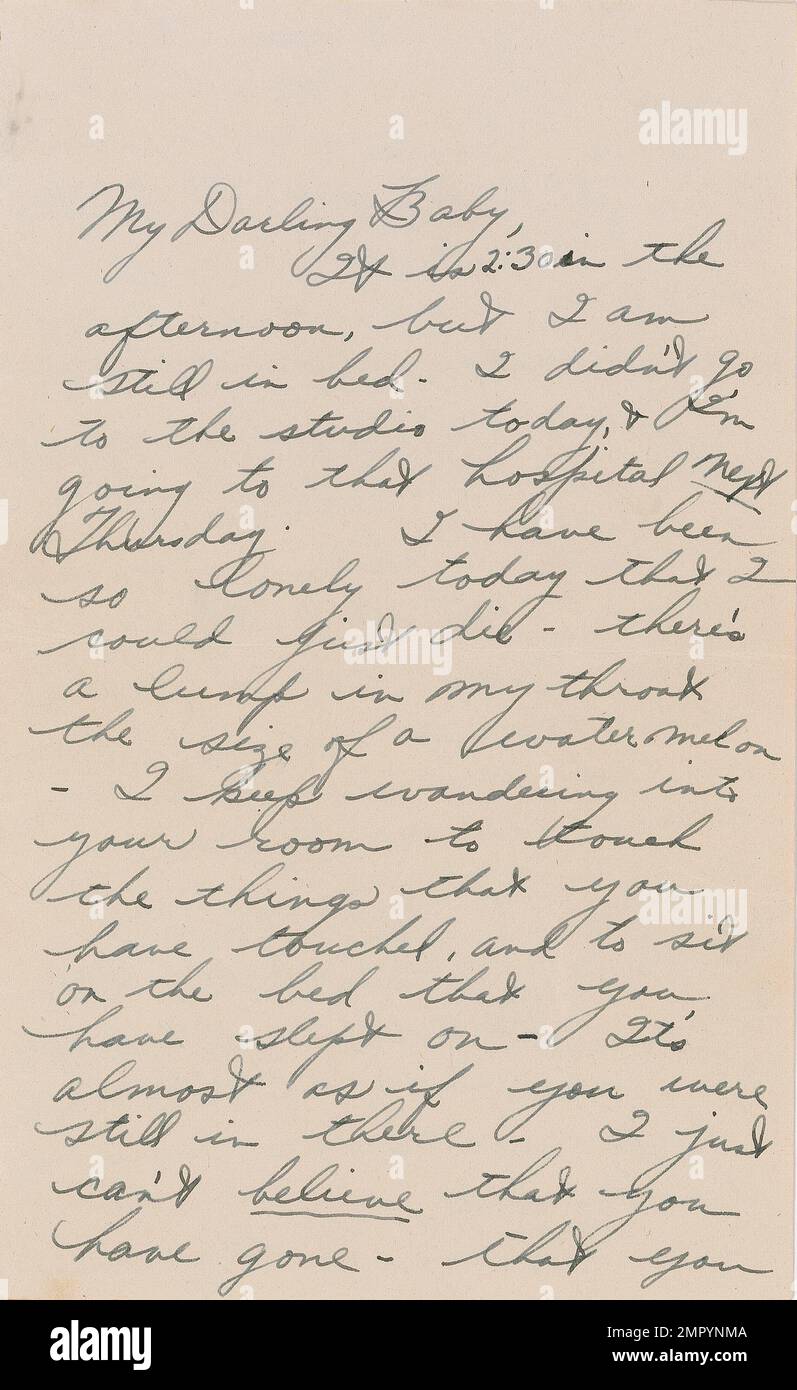 My Darling Baby,
It is 2:30 in the
afternoon, but I am
still in bed - I didn't go
to the studio today, & I'm
going to that hospital next
Thursday. I have been
so lonely today that I
could just die - there's
a lump in my throat
the size of a watermelon
- I keep wandering into
your room to touch
the things that you
have touched, and to sit
on the bed that you
have slept on - It's
almost as if you were
still in there - I just
can't believe that you
have gone - that you
a alamy
alamy
Image ID: 2MPYNMA
www.alamy.com